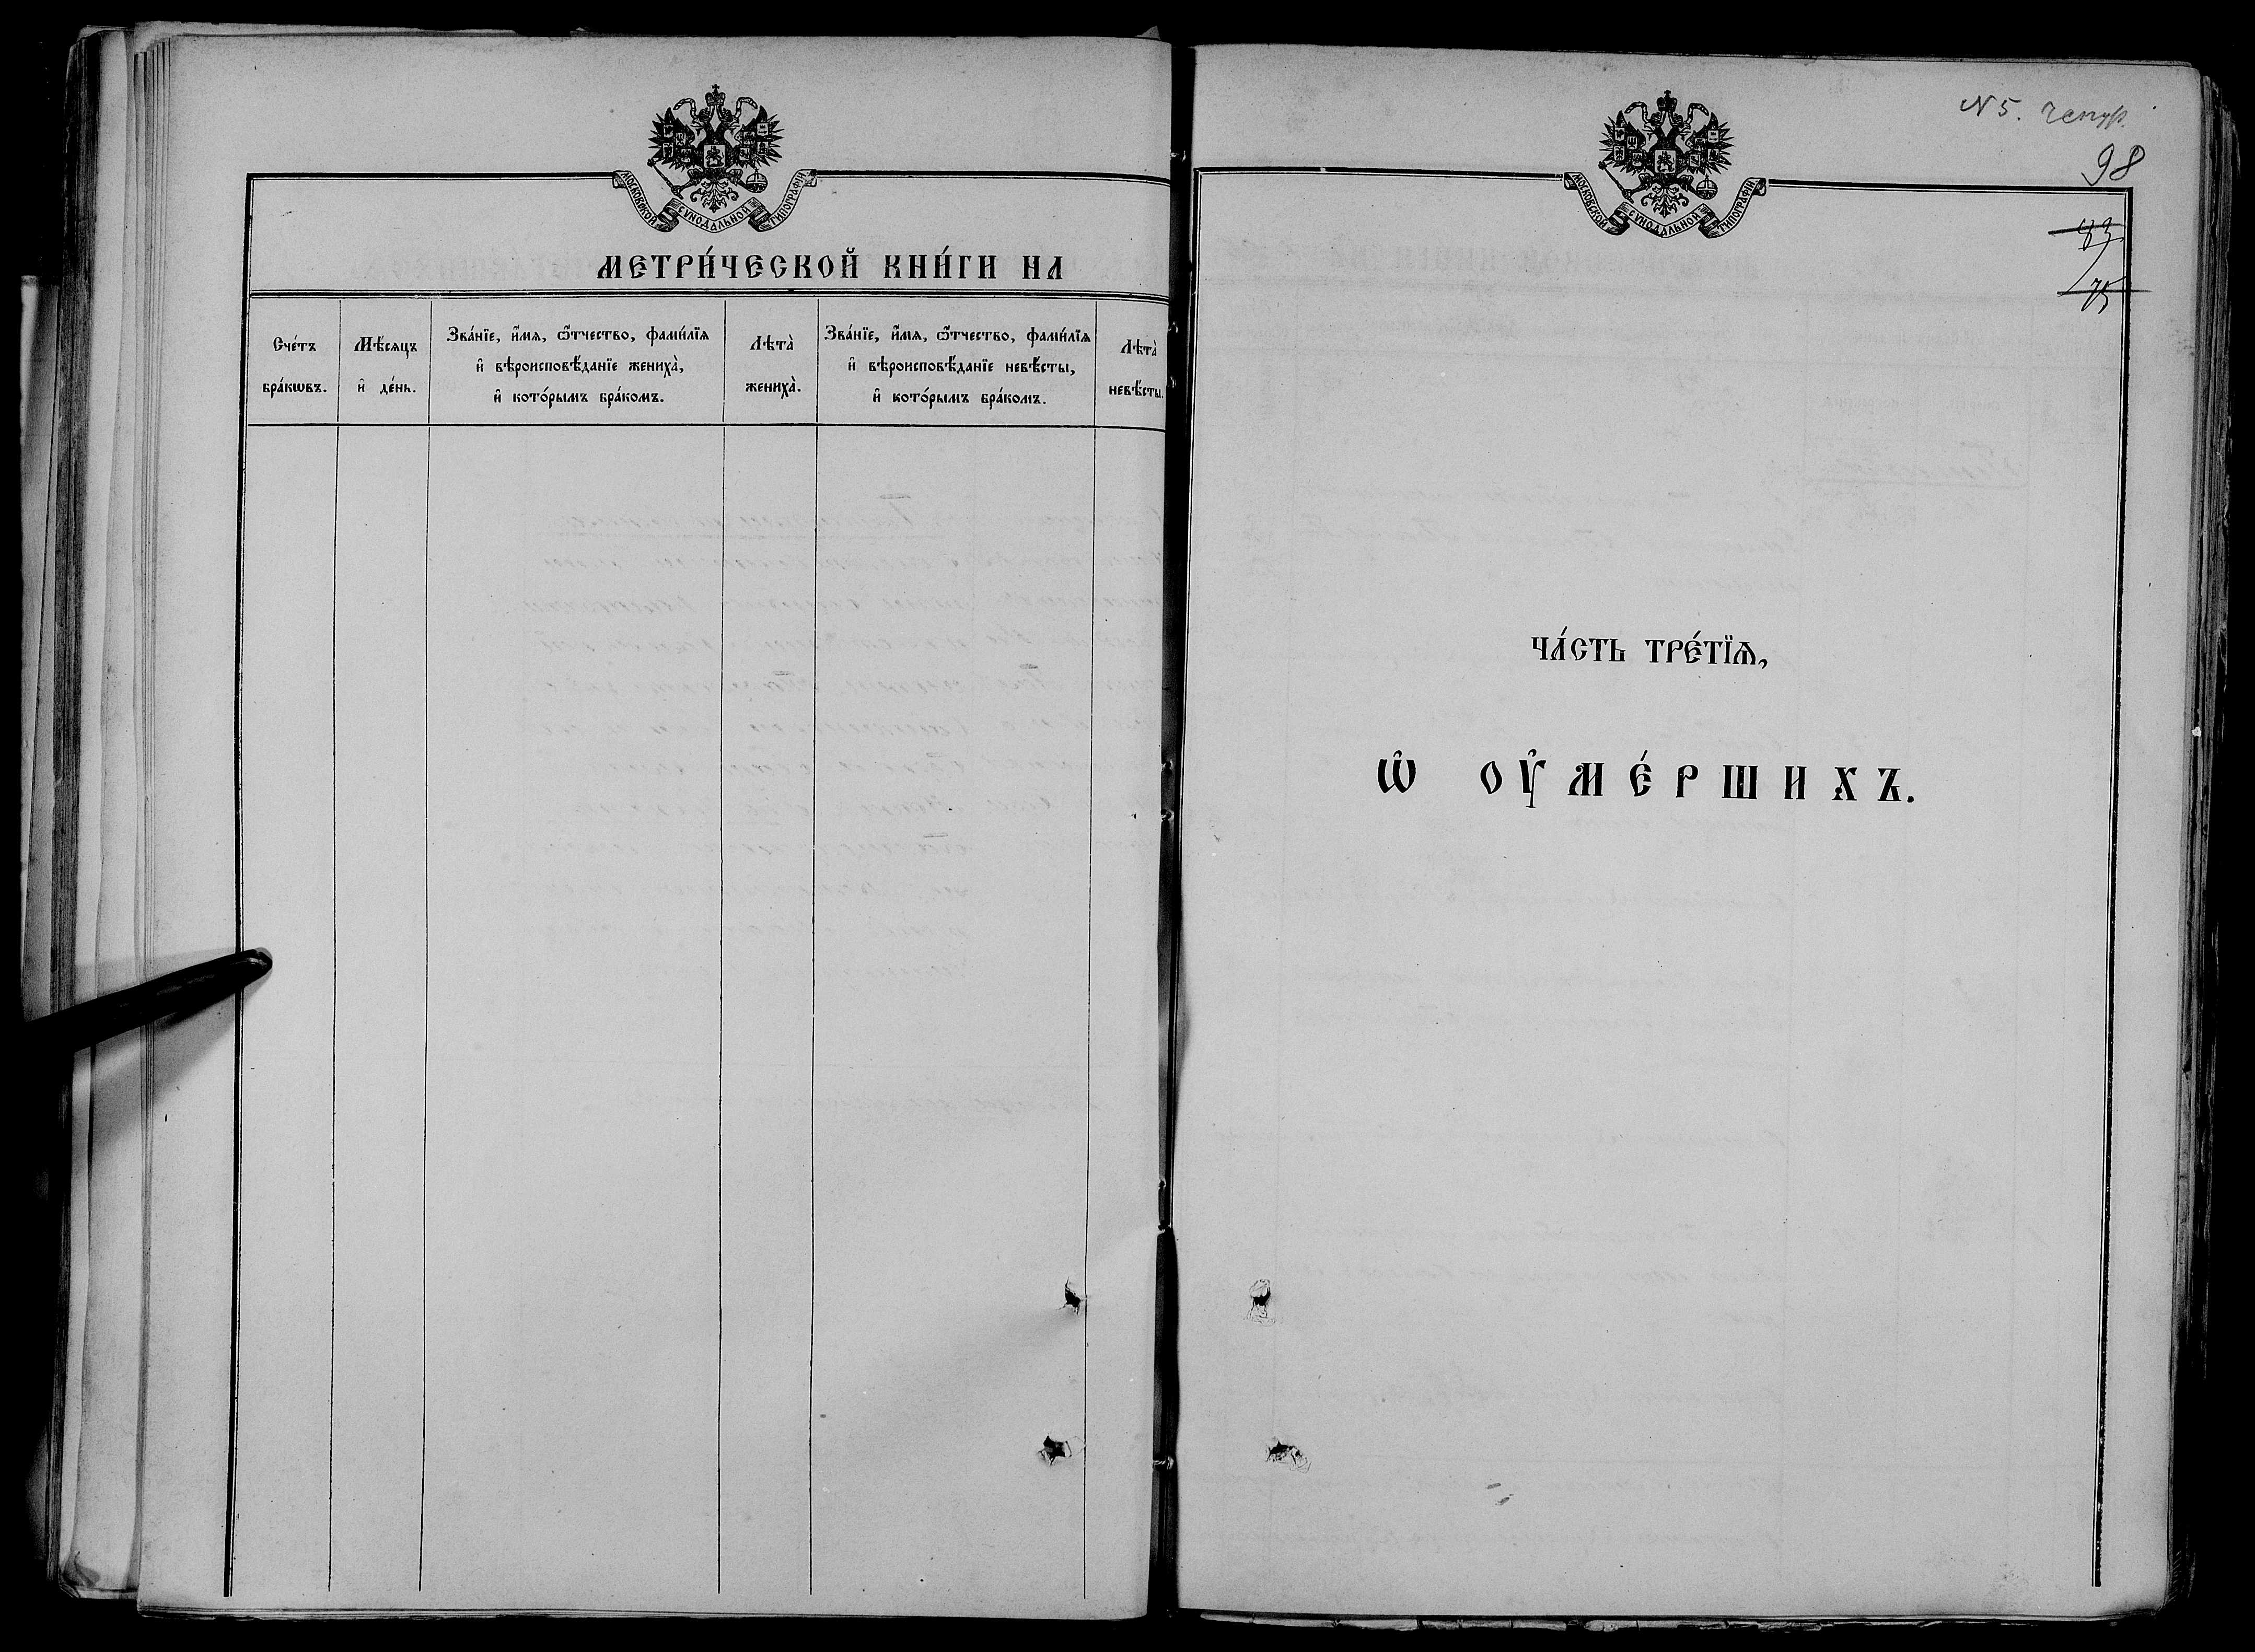 МОСКОВСКОЙ СѴНОДАЛЬНОЙ ТИПОГРАФІИ
МЕТРИ́ЧЕСКОЙ КНИ́ГИ НА
Сче́тъ
бра́кѡвъ.
Мѣ́сяцъ
и҆ де́нь.
Зва́нїе, и҆́мѧ, ѻ҆́тчество, фами́лїѧ
и҆ вѣроисповѣ́данїе жениха̀,
и҆ кото́рымъ бра́комъ.
Лѣта̀
жениха̀.
Зва́нїе, и҆́мѧ, ѻ҆́тчество, фами́лїѧ
и҆ вѣроисповѣ́данїе невѣ́сты,
и҆ кото́рымъ бра́комъ.
Лѣта̀
невѣ́сты.
N 5.
98
МОСКОВСКОЙ СѴНОДАЛЬНОЙ ТИПОГРАФІИ
75
ЧА́СТЬ ТРЕ́ТЇѦ,
Ѽ ОУ҆МЕ́РШИХЪ.